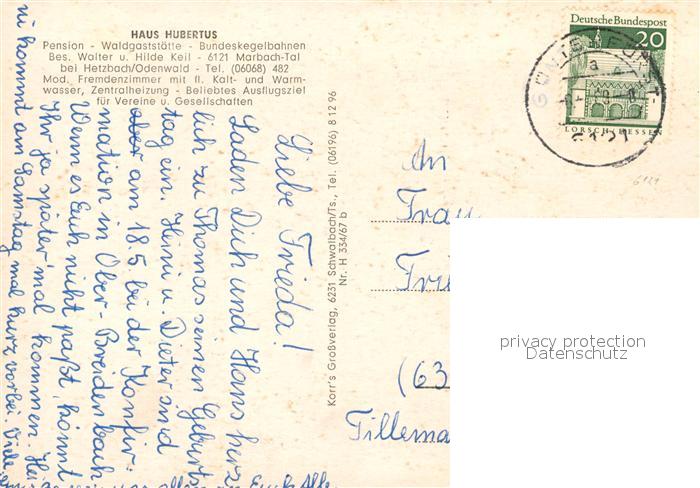 HAUS HUBERTUS
Pension - Waldgaststätte - Bundeskegelbahnen
Bes. Walter u. Hilde Keil - 6121 Marbach-Tal
bei Hetzbach/Odenwald - Tel. (06068) 482
Mod. Fremdenzimmer mit fl. Kalt- und Warm-
wasser, Zentralheizung - Beliebtes Ausflugsziel
für Vereine u. Gesellschaften
Liebe Frieda!
Laden Dich und Hans herz
lich zu Thomas seinen Geburts
tag ein. Heini u. Dieter sind
aber am 18.5. bei der Konfir-
mation in Ober-Breidenbach
Wenn es Euch nicht paßt, könnt
Ihr ja später mal kommen.
kommt am Samstag mal kurz vorbei. Viele
Korr's Großverlag, 6231 Schwalbach/Ts., Tel. (06196) 8 12 96
Nr. H 334/67 b
Deutsche Bundespost
20
LORSCH/HESSEN
6121
6121
An
Frau
Fri
(63
Tillema
privacy protection
Datenschutz